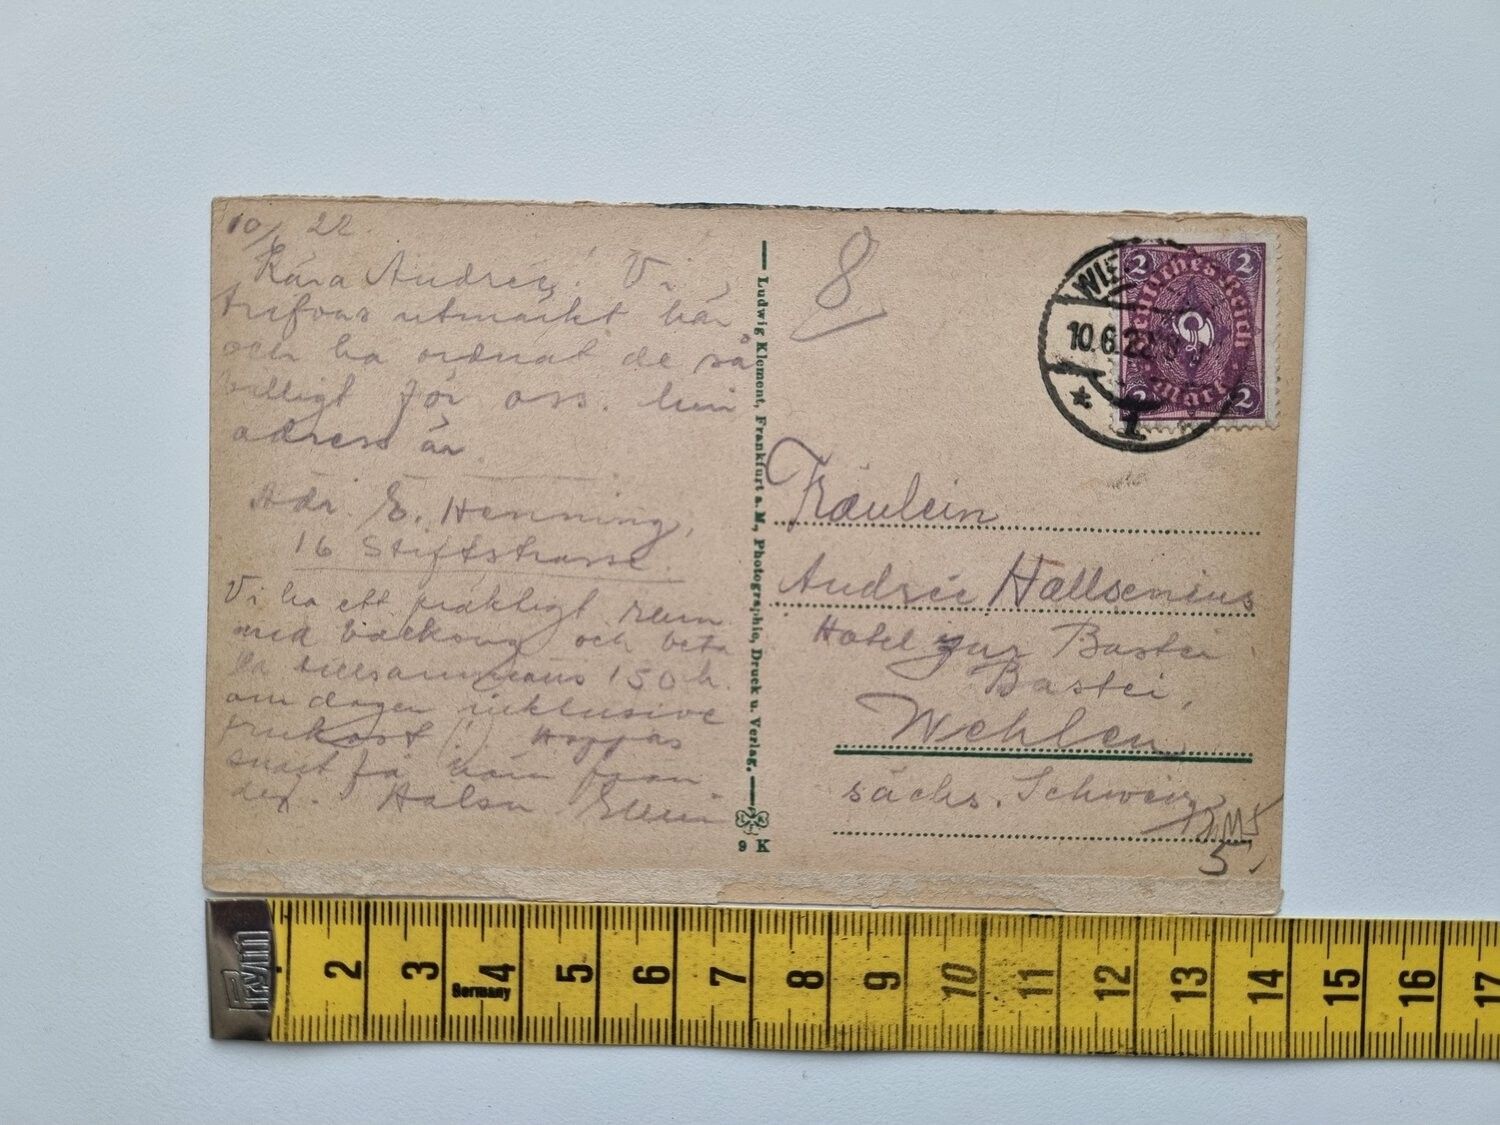 10/ 22.
Kära Andrée! Vi
trifvas utmärkt här
och ha ordnat de så
billigt för oss. Min
adress är
Adr. E. Henning,
16 Stiftstrasse.
Vi ha ett präktigt rum
med balkong och beta
la tillsammans 150 k.
om dagen inklusive
frukost (!) Hoppas
snart få höra från
dig. Hälsn
Ludwig Klement, Frankfurt a. M., Photographie, Druck u. Verlag.
L K F
9 K
8
WIE
10.6.22
*
1
2 2
Deutsches Reich
Mark
2 2
Fräulein
Andrée Hallsenius
Hotel zur Bastei
Bastei,
Wehlen
sächs. Schweiz
5
Prym
2 3 4 5 6 7 8 9 10 11 12 13 14 15 16 17
Germany